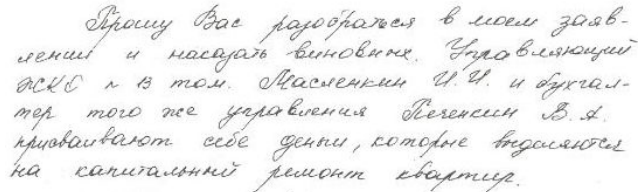 Прошу Вас разобраться в моем заяв-
лении и наказать виновных. Управляющий
ЖКО № 13 тов. Масленкин И.И. и бухгал-
тер того же управления Печенкин В.А.
присваивают себе деньги, которые выделяются
на капитальный ремонт квартир.